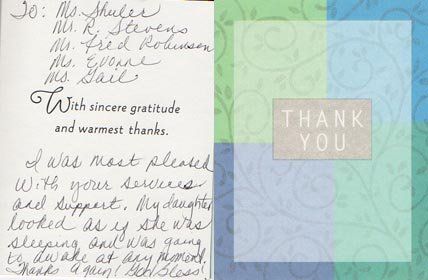 To: Ms. Shuler
Mr. R. Stevens
Mr. Fred Robinson
Ms. Evonne
Ms. Gail
With sincere gratitude
and warmest thanks.
I was most pleased
with your services
and support. My daughter
looked as if she was
sleeping and was going
to awake at any moment.
Thanks Again! God Bless!
THANK
YOU